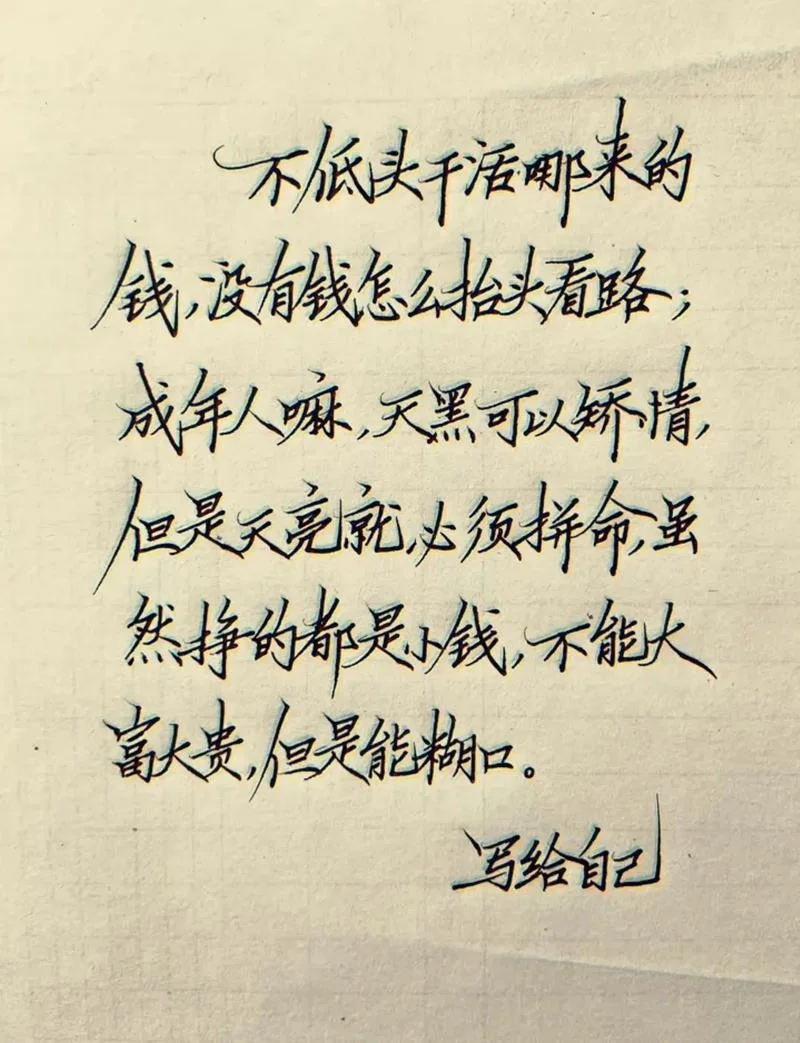 不低头干活哪来的
钱,没有钱怎么抬头看路;
成年人嘛,天黑可以矫情,
但是天亮就必须拼命,虽
然挣的都是小钱,不能大
富大贵,但是能糊口。
写给自己